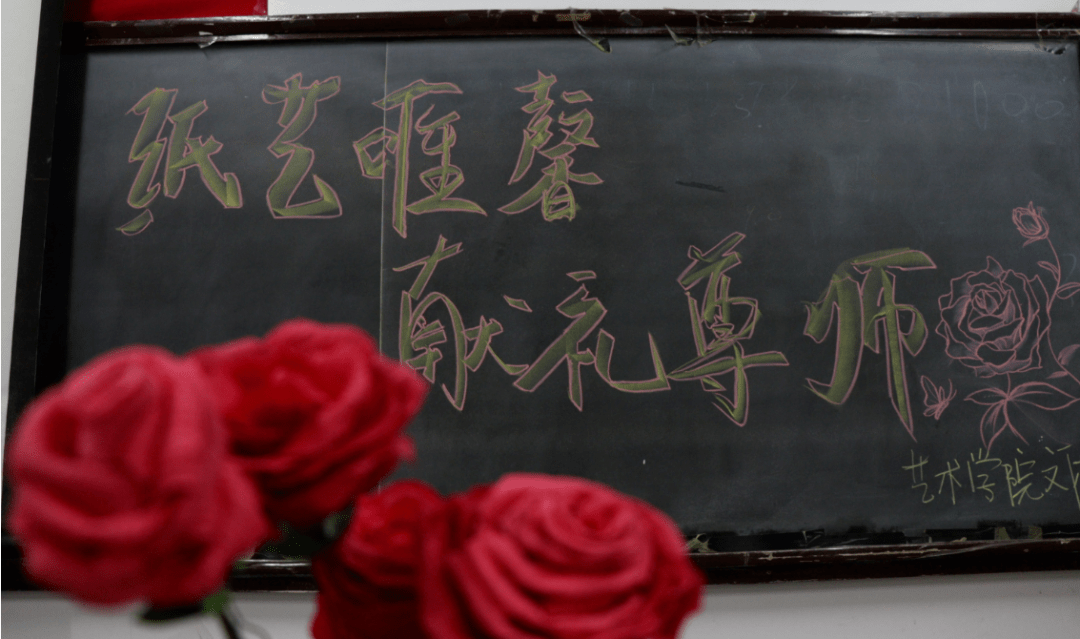 纸艺唯馨
献礼尊师
艺术学院文